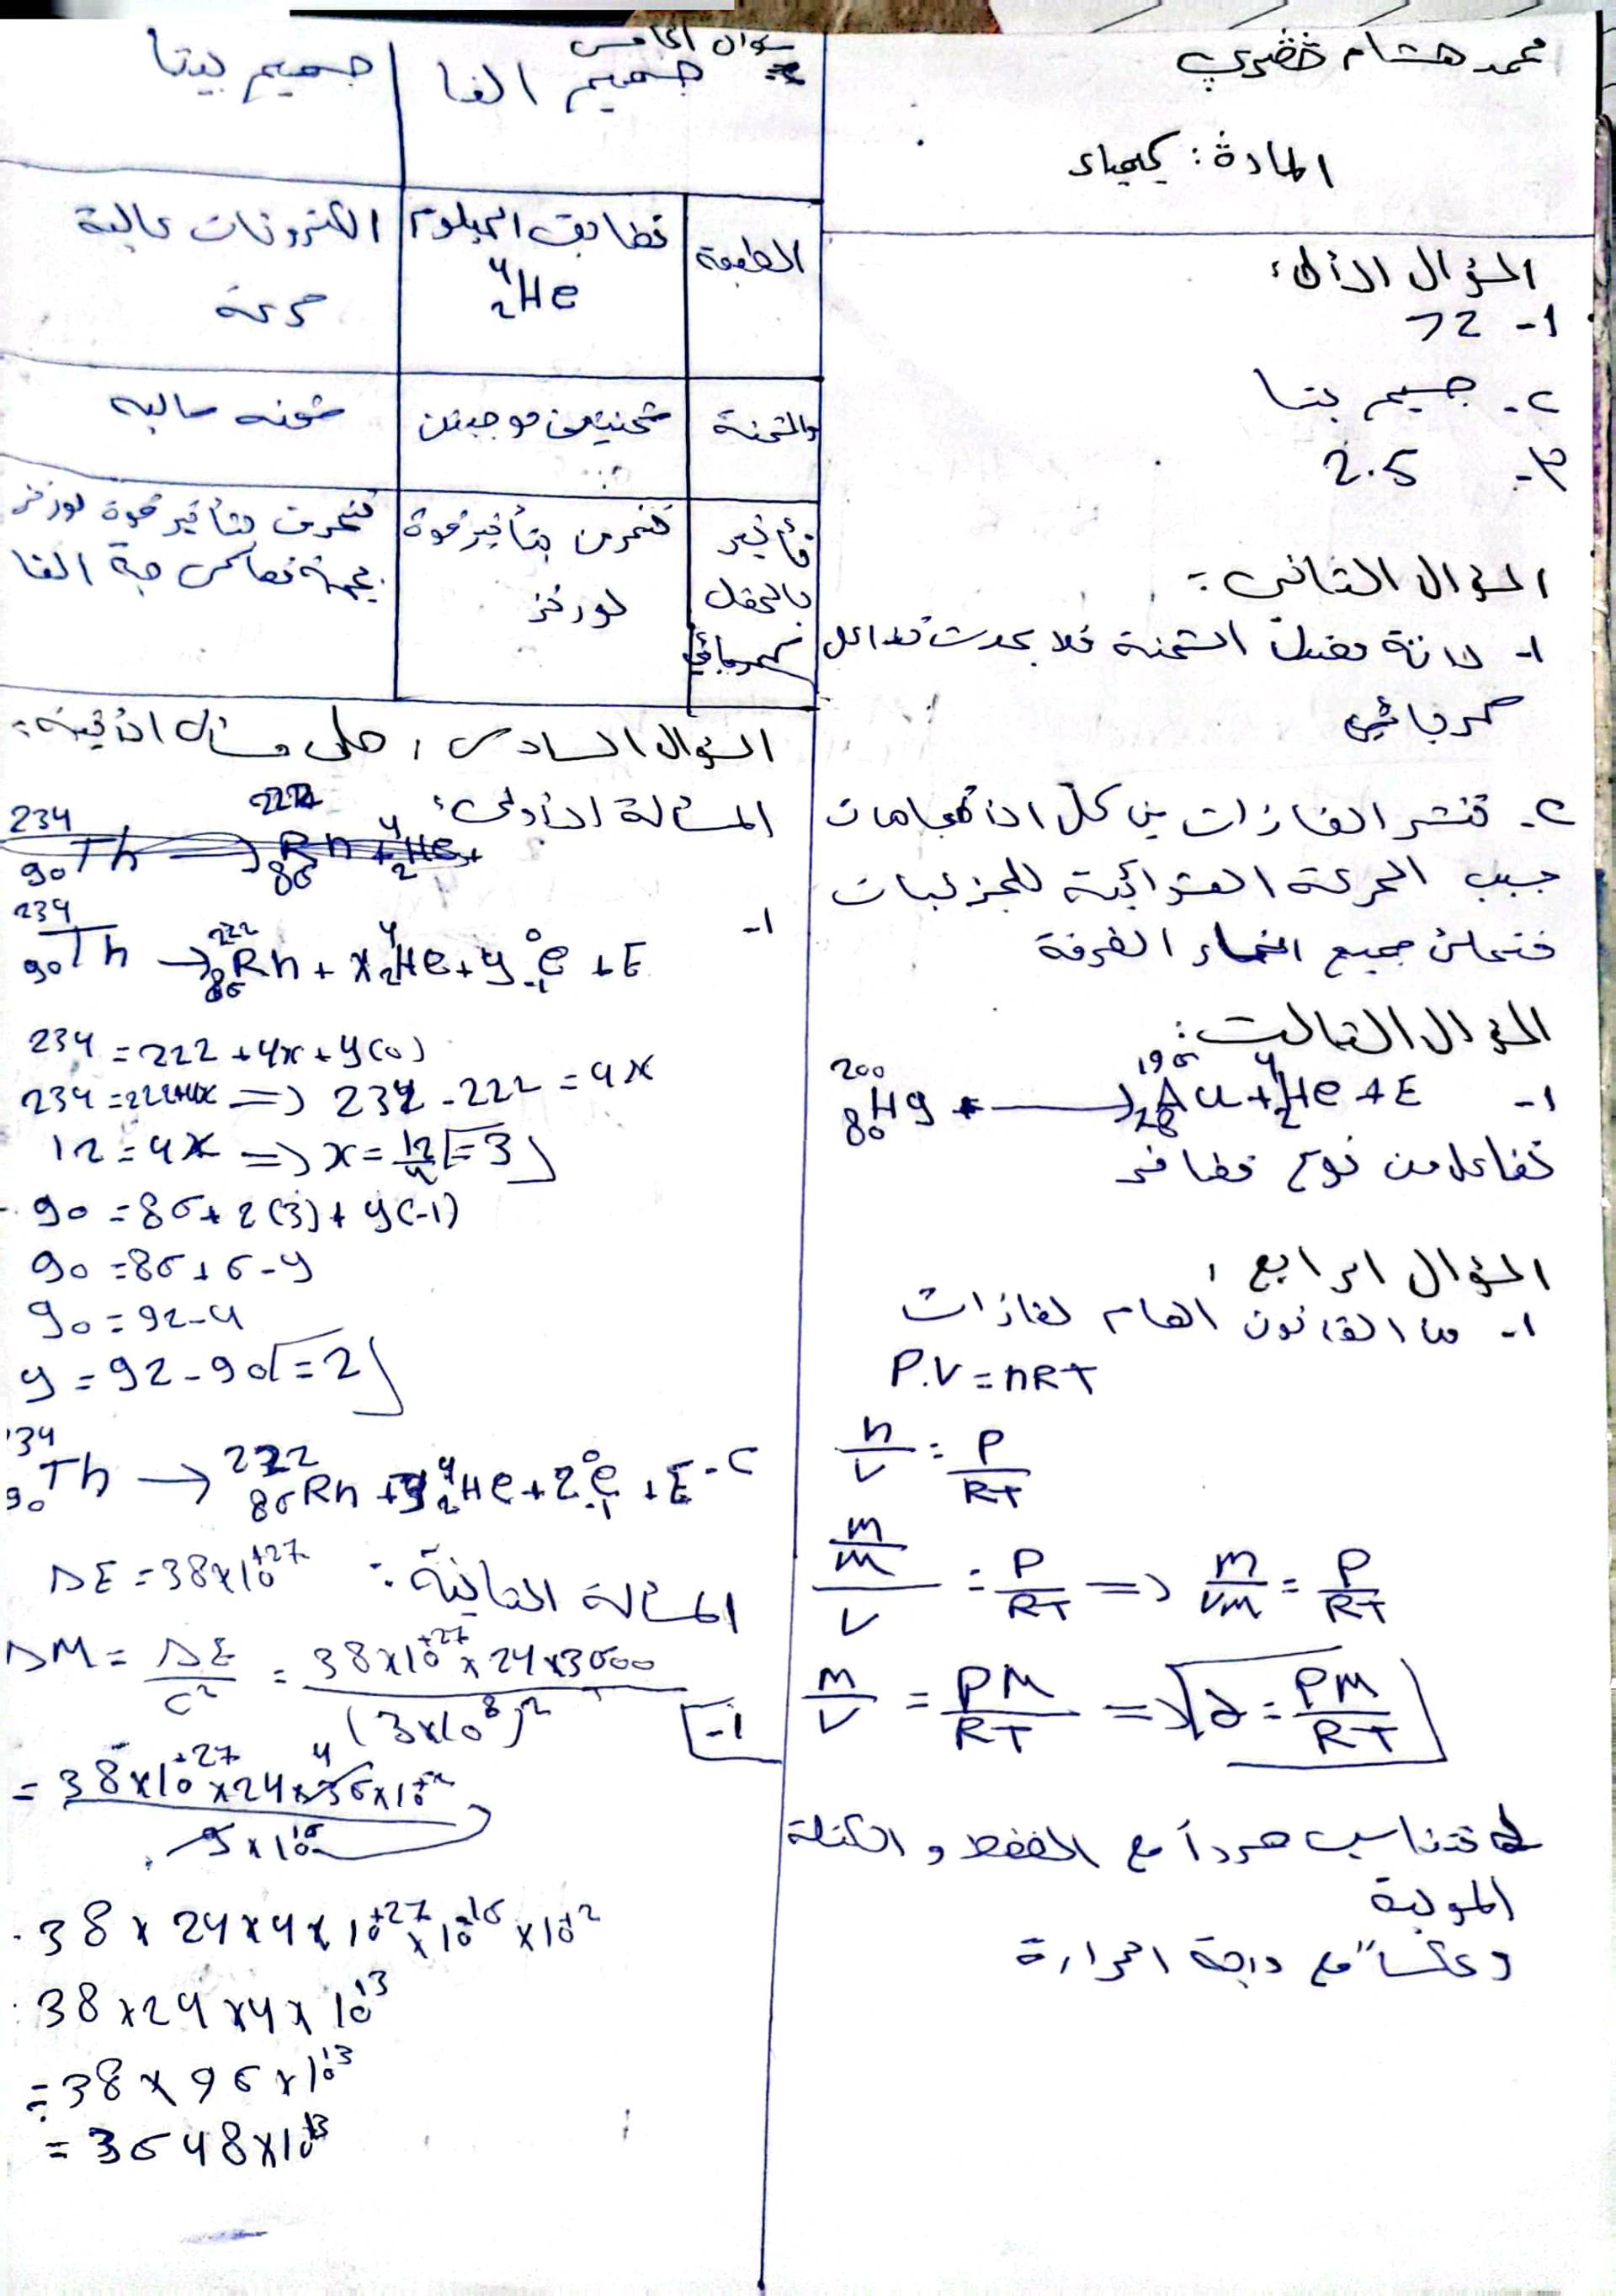 محمد هشام خضري
المادة: كيمياء
السؤال الأول:
1- 72
2- جسيم بيتا
3- 2.5
السؤال الثاني:
1- لانة معتدل الشحنة فلا يحدث تداخل
كهربائي
2- تنتشر الغازات في كل الاتجاهات
بسبب الحركة العشوائية للجزئيات
فتملئ جميع انحاء الغرفة
السؤال الثالث:
1- ²⁰⁰₈₀Hg → ¹⁹⁶₇₈Au + ⁴₂He + E
تفاعل من نوع
السؤال الرابع:
1- من القانون العام لغازات
P.V = nRT
n/V = P/RT
(m/M)/V = P/RT => m/VM = P/RT
m/V = PM/RT => d = PM/RT
تتناسب طرداً مع الضغط و الكتلة
المولية
وعكساً مع درجة الحرارة
سؤال الخامس
جسيم الفا | جسيم بيتا
الطبيعة | تطابق الهيليوم ⁴₂He | الكترونات عالية سرعة
والشحنة | شحنيتين موجبتين | شحنه سالبه
تأثير بالحقل كهربائي | تنحرف بتأثير قوة لورنز | تنحرف بتأثير قوة لورنز بجهة تعاكس جهة الفا
السؤال السادس: حلي مسأل الأتية:
المسألة الأولى:
²³⁴₉₀Th → ²²²₈₆Rn + ⁴₂He +
1- ²³⁴₉₀Th → ²²²₈₆Rn + x ⁴₂He + y ⁰₋₁e + E
234 = 222 + 4x + y(0)
234 = 222+4x => 234 - 222 = 4x
12 = 4x => x = 12/4 = 3
90 = 86 + 2(3) + y(-1)
90 = 86 + 6 - y
90 = 92 - y
y = 92 - 90 = 2
2- ²³⁴₉₀Th → ²²²₈₆Rn + 3 ⁴₂He + 2 ⁰₋₁e + E
المسألة الثانية:
ΔE = 38×10⁺²⁷
1- ΔM = ΔE/C² = 38×10⁺²⁷×24×3600/(3×10⁸)²
= 38×10⁺²⁷×24×36×10⁺²/9×10¹⁶
38 × 24 × 4 × 10⁺²⁷ × 10⁻¹⁶ × 10⁺²
38 × 24 × 4 × 10¹³
= 38 × 96 × 10¹³
= 3648×10¹³